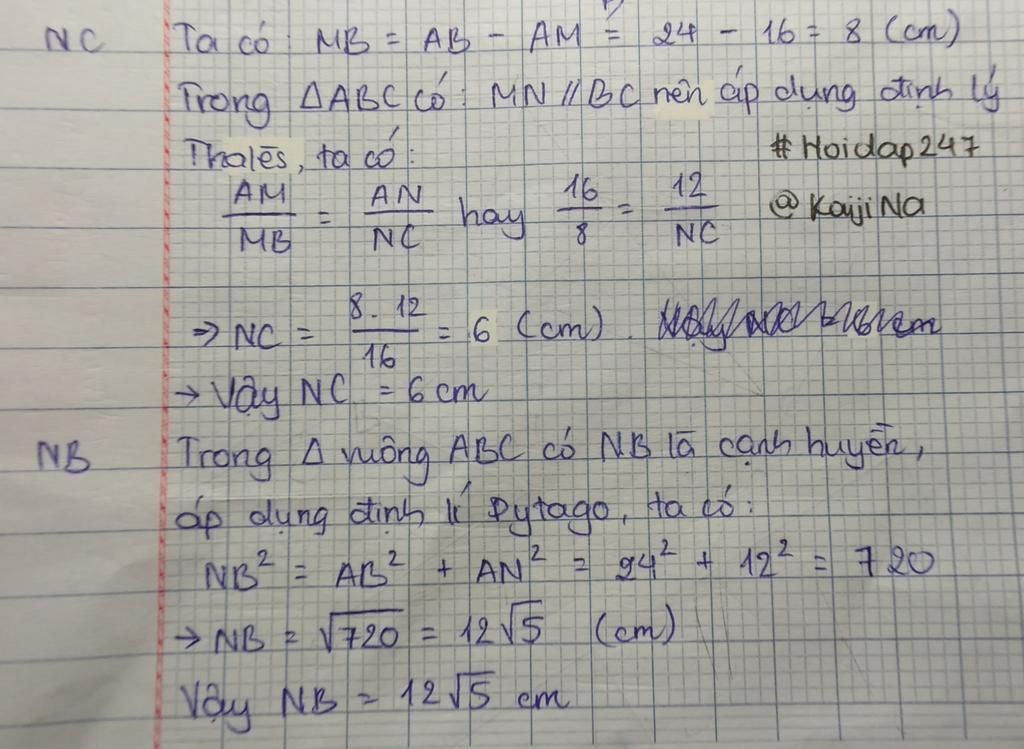 NC Ta có: MB = AB - AM = 24 - 16 = 8 (cm)
Trong ΔABC có: MN // BC nên áp dụng định lý
Thalēs, ta có: #Hoidap247
AM/MB = AN/NC hay 16/8 = 12/NC @KaijiNa
⇒ NC = 8.12/16 = 6 (cm).
→ Vậy NC = 6 cm
NB Trong Δ vuông ABC có NB là cạnh huyền,
áp dụng định lí Pytago, ta có:
NB² = AB² + AN² = 24² + 12² = 720
→ NB = √720 = 12√5 (cm)
Vậy NB = 12√5 cm